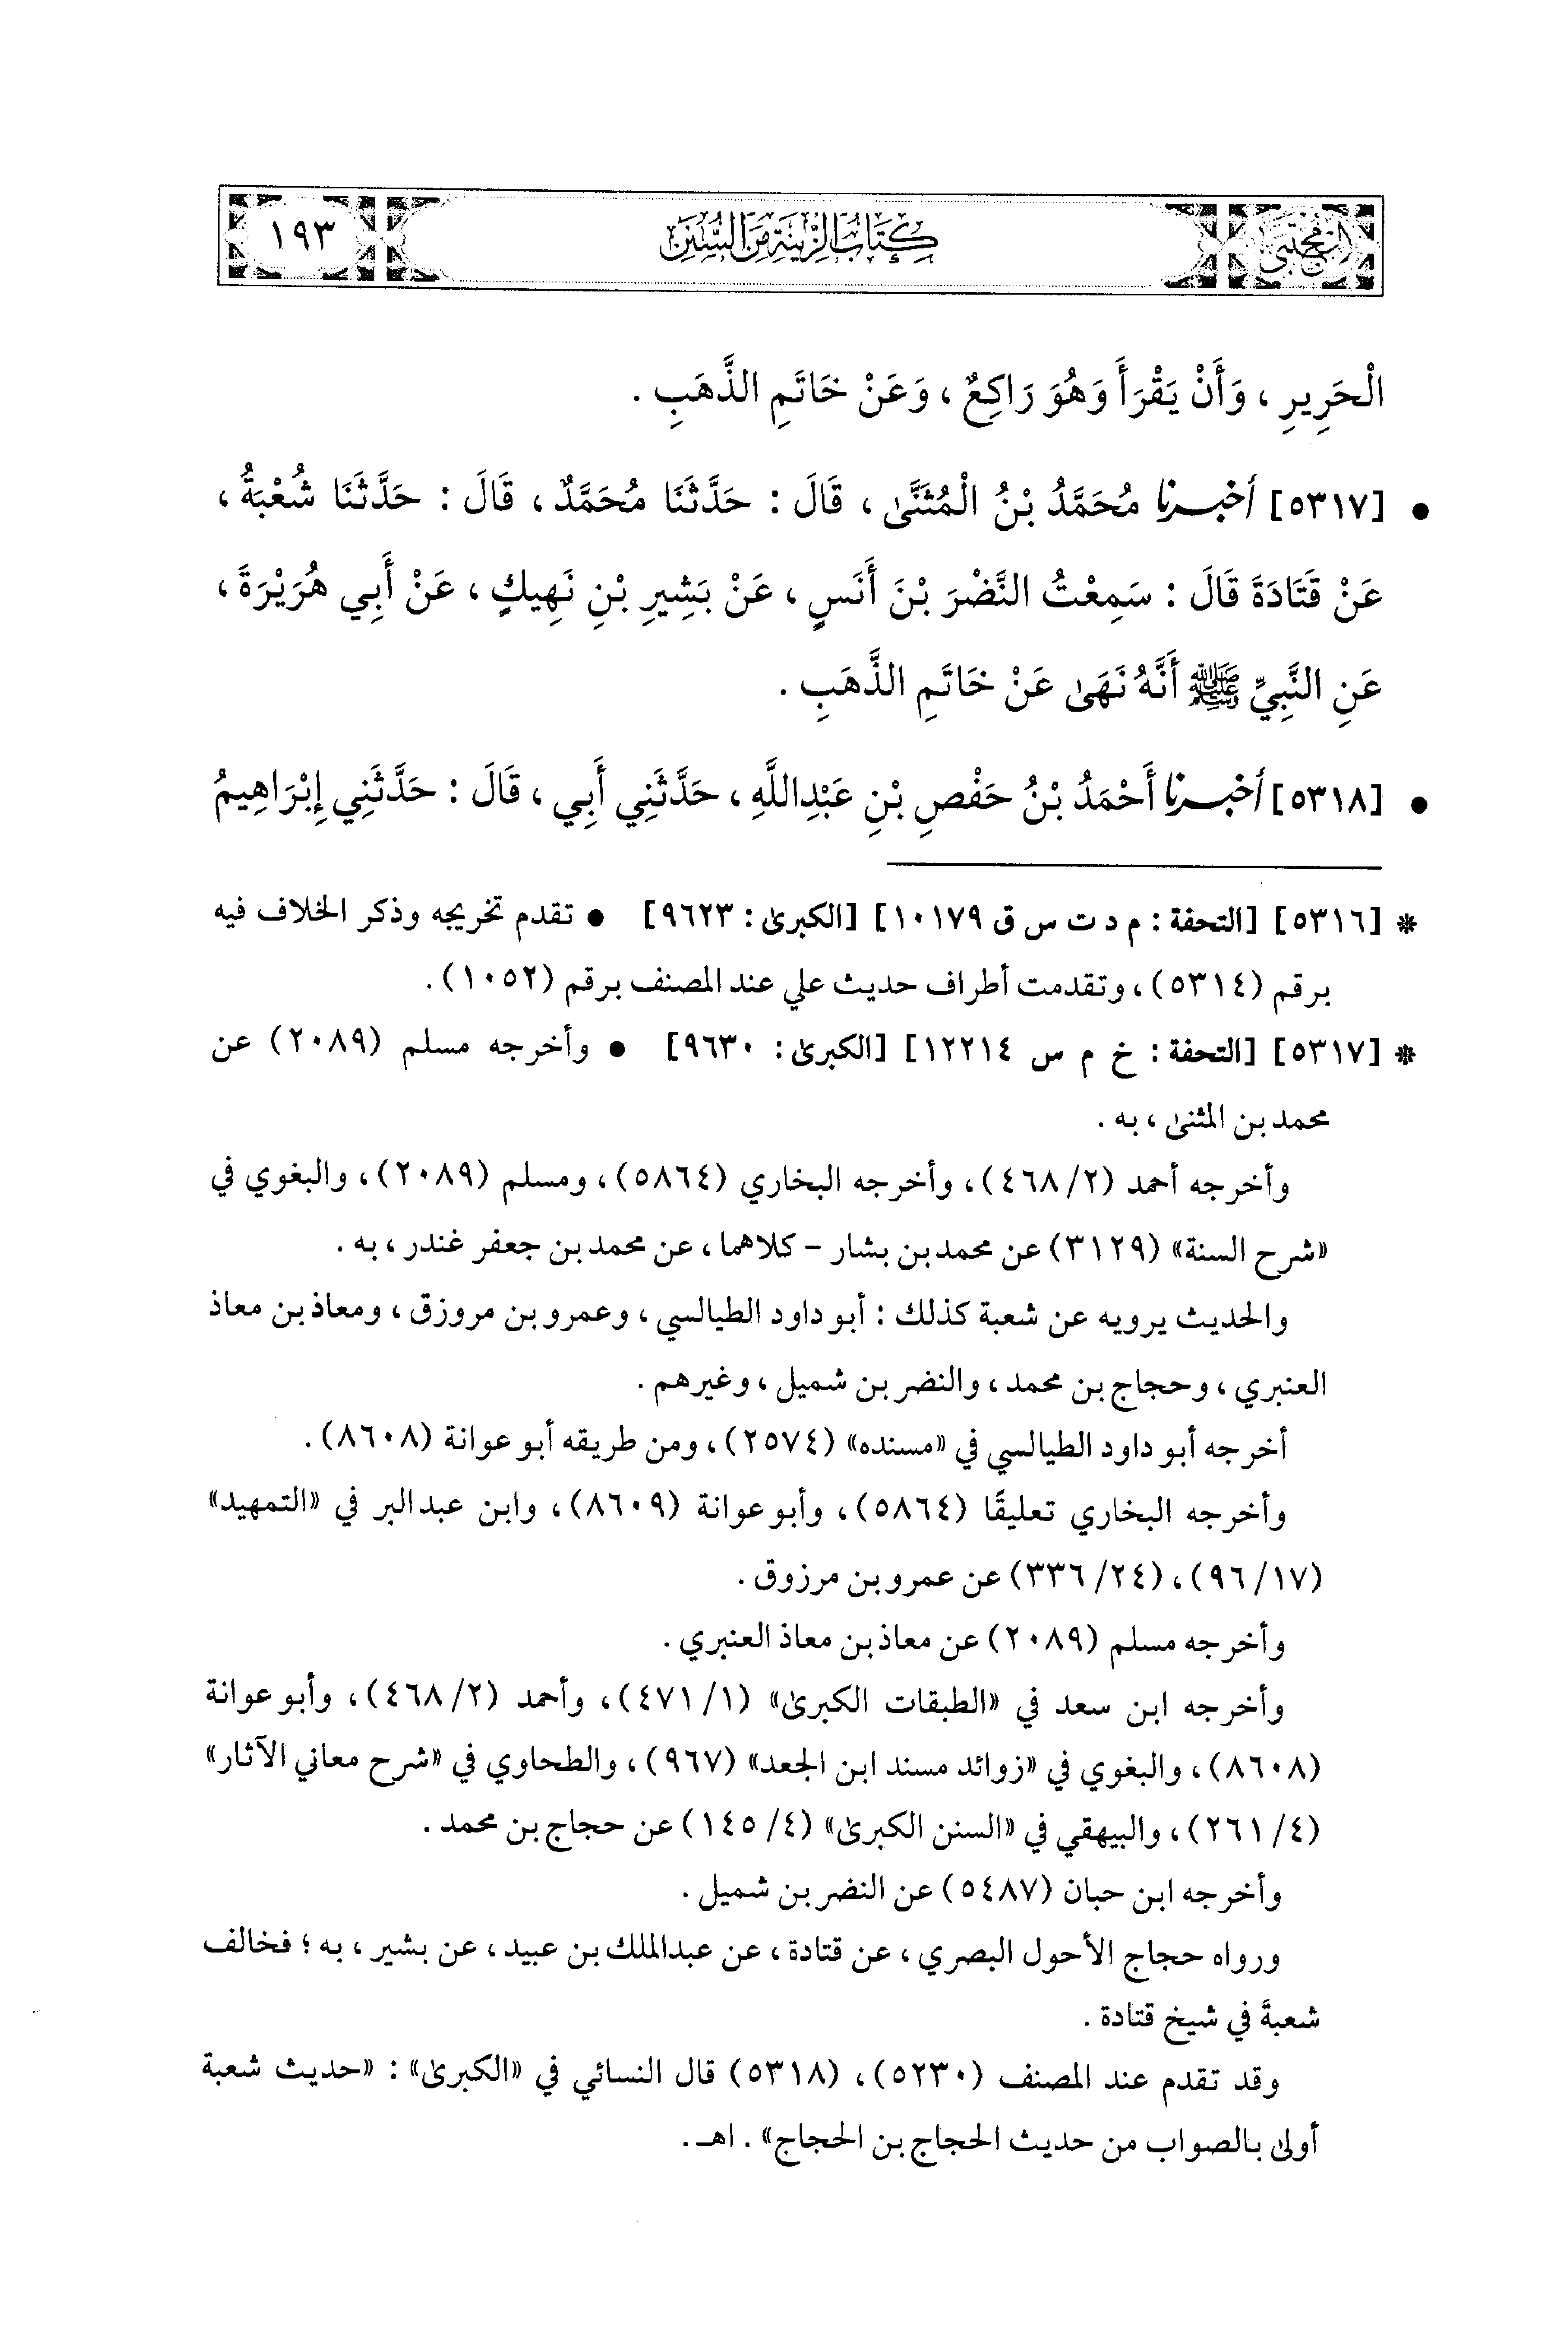 المجتبى
كِتَابُ الزِّينَةِ مِنَ السُّنَنِ
١٩٣
الْحَرِيرِ ، وَأَنْ يَقْرَأَ وَهُوَ رَاكِعٌ ، وَعَنْ خَاتَمِ الذَّهَبِ .
• [٥٣١٧] أخبرنا مُحَمَّدُ بْنُ الْمُثَنَّى ، قَالَ : حَدَّثَنَا مُحَمَّدٌ ، قَالَ : حَدَّثَنَا شُعْبَةُ ،
عَنْ قَتَادَةَ قَالَ : سَمِعْتُ النَّضْرَ بْنَ أَنَسٍ ، عَنْ بَشِيرِ بْنِ نَهِيكٍ ، عَنْ أَبِي هُرَيْرَةَ ،
عَنِ النَّبِيِّ ﷺ أَنَّهُ نَهَى عَنْ خَاتَمِ الذَّهَبِ .
• [٥٣١٨] أخبرنا أَحْمَدُ بْنُ حَفْصِ بْنِ عَبْدِاللَّهِ ، حَدَّثَنِي أَبِي ، قَالَ : حَدَّثَنِي إِبْرَاهِيمُ
* [٥٣١٦] [التحفة : م د ت س ق ١٠١٧٩] [الكبرى : ٩٦٢٣] • تقدم تخريجه وذكر الخلاف فيه
برقم (٥٣١٤) ، وتقدمت أطراف حديث علي عند المصنف برقم (١٠٥٢) .
* [٥٣١٧] [التحفة : خ م س ١٢٢١٤] [الكبرى : ٩٦٣٠] • وأخرجه مسلم (٢٠٨٩) عن
محمد بن المثنى ، به .
وأخرجه أحمد (٢/ ٤٦٨) ، وأخرجه البخاري (٥٨٦٤) ، ومسلم (٢٠٨٩) ، والبغوي في
«شرح السنة» (٣١٢٩) عن محمد بن بشار - كلاهما ، عن محمد بن جعفر غندر ، به .
والحديث يرويه عن شعبة كذلك : أبو داود الطيالسي ، وعمرو بن مروزق ، ومعاذ بن معاذ
العنبري ، وحجاج بن محمد ، والنضر بن شميل ، وغيرهم .
أخرجه أبو داود الطيالسي في «مسنده» (٢٥٧٤) ، ومن طريقه أبو عوانة (٨٦٠٨) .
وأخرجه البخاري تعليقًا (٥٨٦٤) ، وأبو عوانة (٨٦٠٩) ، وابن عبدالبر في «التمهيد»
(١٧/ ٩٦) ، (٢٤/ ٣٣٦) عن عمرو بن مرزوق .
وأخرجه مسلم (٢٠٨٩) عن معاذ بن معاذ العنبري .
وأخرجه ابن سعد في «الطبقات الكبرى» (١/ ٤٧١) ، وأحمد (٢/ ٤٦٨) ، وأبو عوانة
(٨٦٠٨) ، والبغوي في «زوائد مسند ابن الجعد» (٩٦٧) ، والطحاوي في «شرح معاني الآثار»
(٤/ ٢٦١) ، والبيهقي في «السنن الكبرى» (٤/ ١٤٥) عن حجاج بن محمد .
وأخرجه ابن حبان (٥٤٨٧) عن النضر بن شميل .
ورواه حجاج الأحول البصري ، عن قتادة ، عن عبدالملك بن عبيد ، عن بشير ، به ؛ فخالف
شعبةَ في شيخ قتادة .
وقد تقدم عند المصنف (٥٢٣٠) ، (٥٣١٨) قال النسائي في «الكبرى» : «حديث شعبة
أولى بالصواب من حديث الحجاج بن الحجاج» . اهـ .